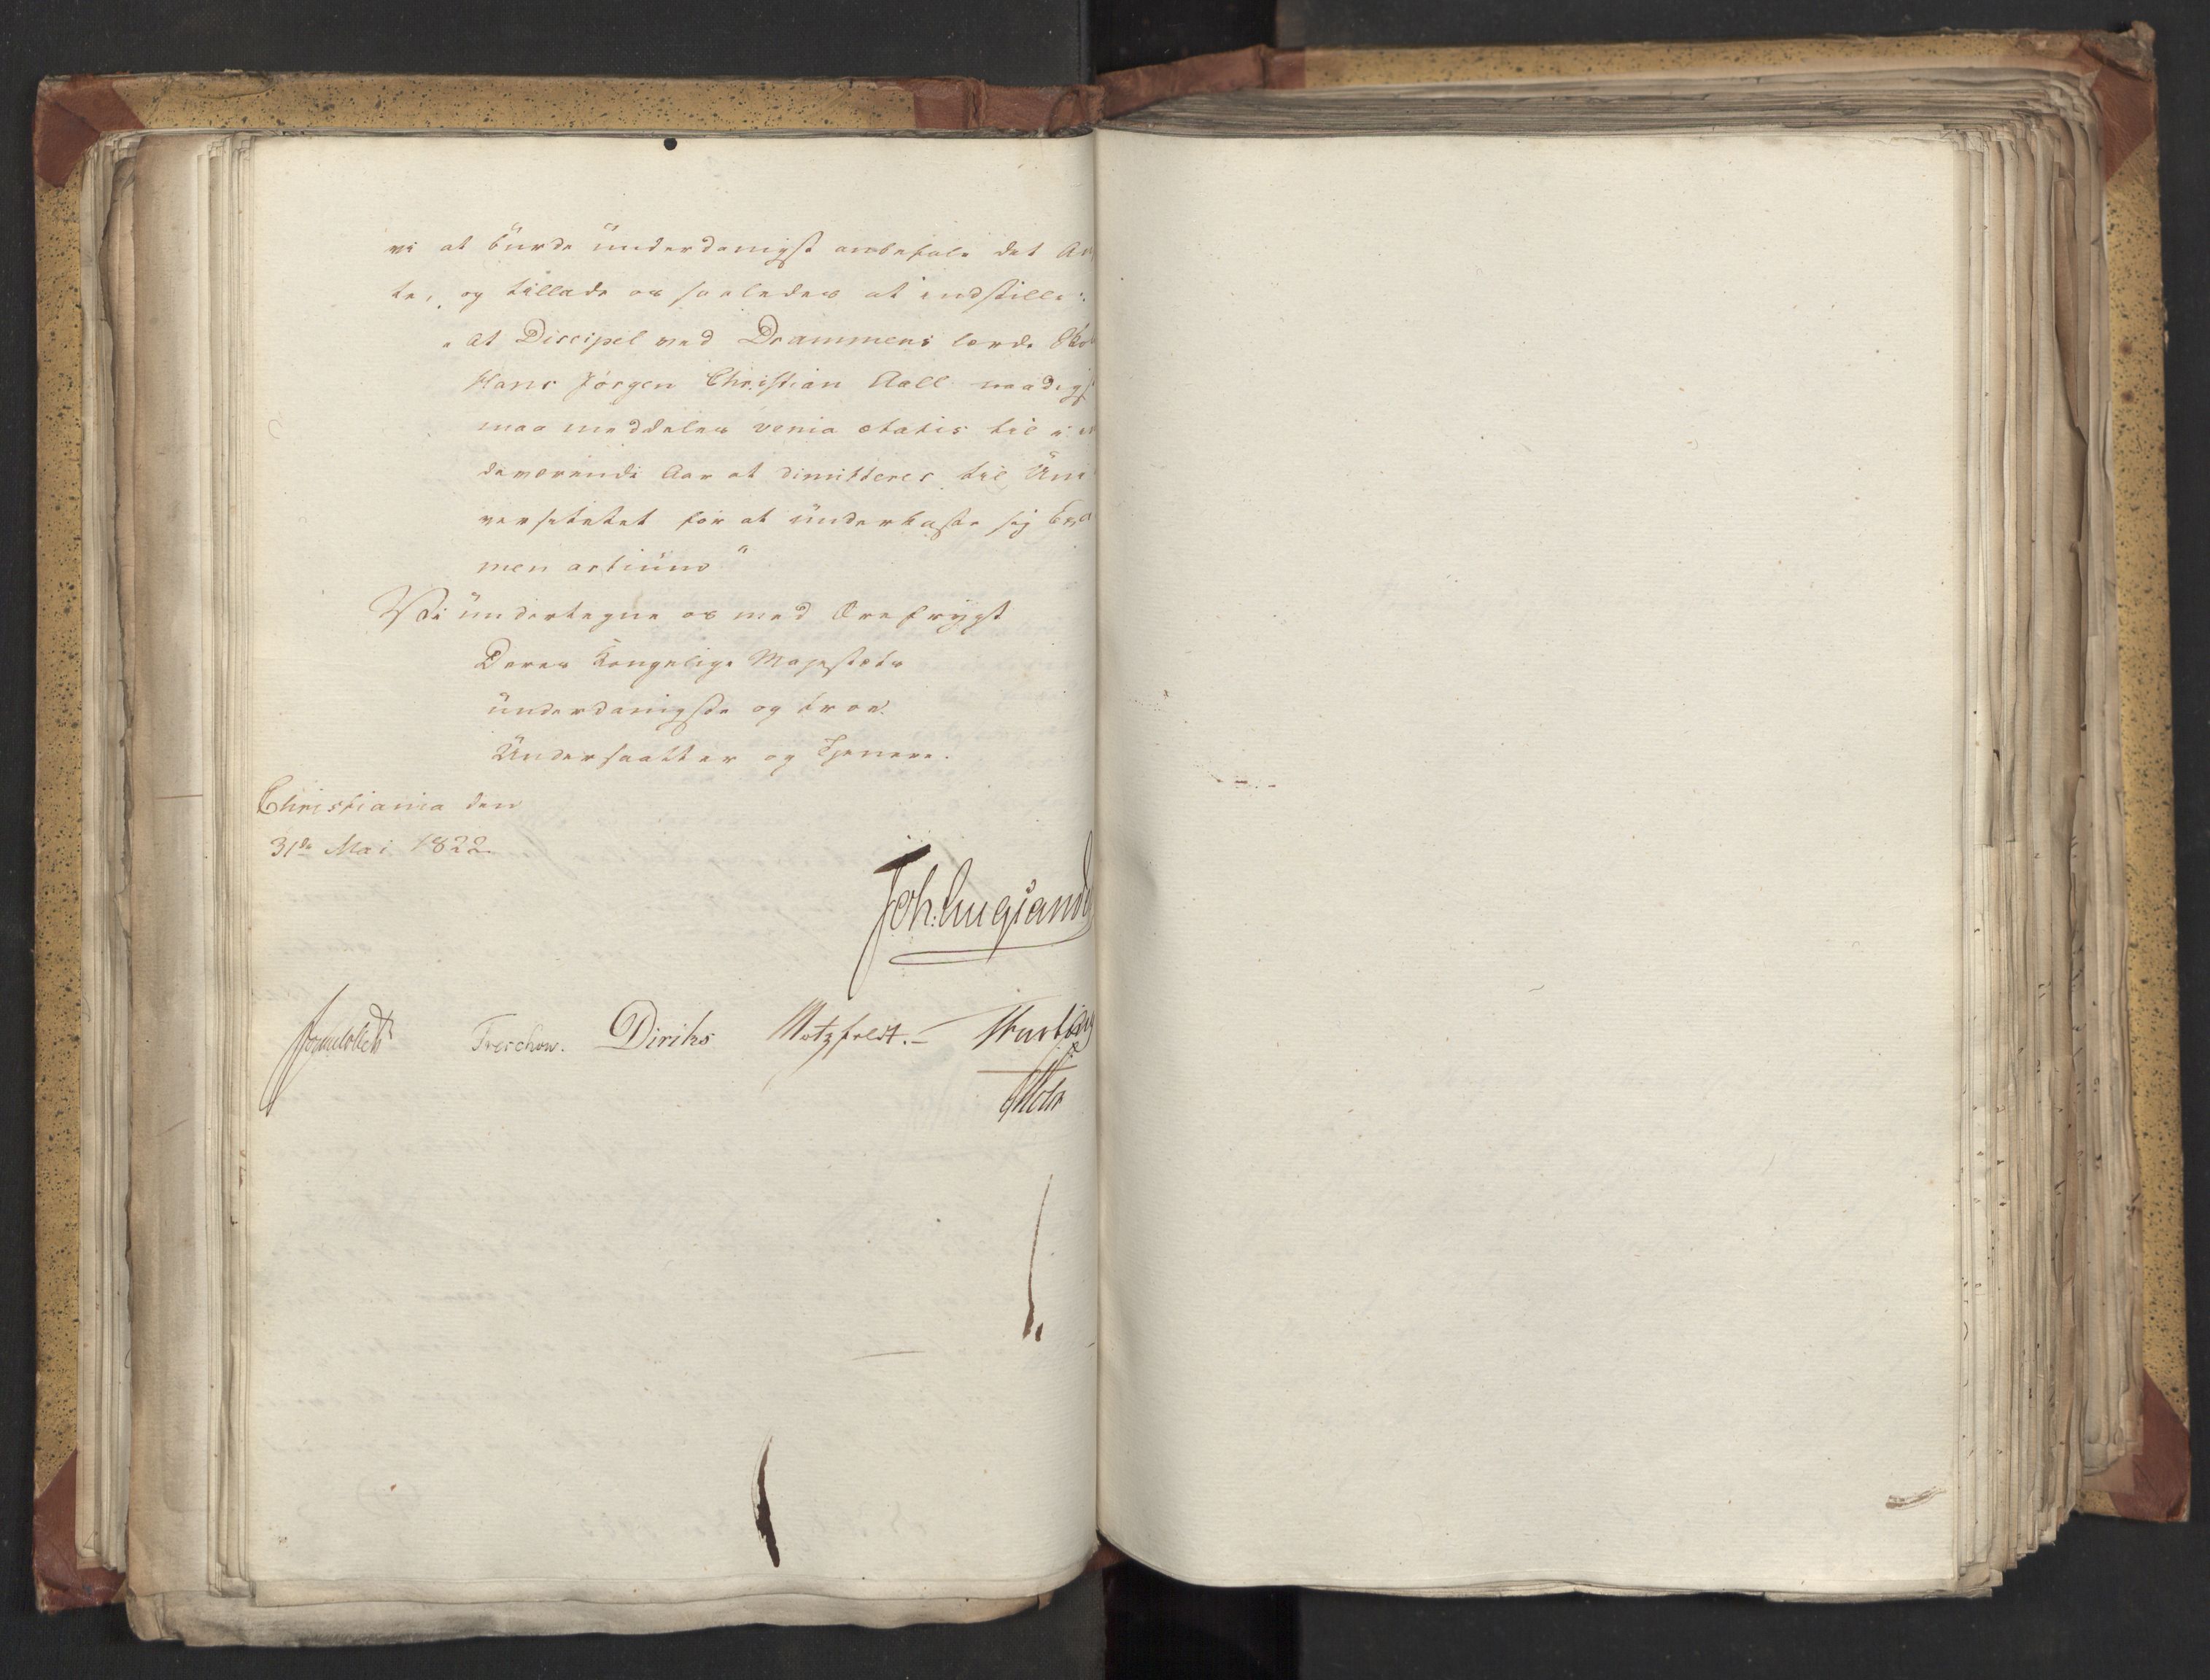 vi at burde underdanigst anbefale det An
te, og tillade os saaledes at indstille:
"at Discipel ved Drammens lærde Sko
Hans Jørgen Christian Aall naadigst
maa meddeles venia ætatis til i in
deværende Aar at dimitteres til Uni
versitetet for at underkaste sig Exa
men artium"
Vi undertegne os med Ærefrygt
Deres Kongelige Majestæts
underdanigste og troe
Undersaatter og Tjenere.
Christiania den
31de Mai 1822.
Joh: Aug Sande
Jonas Collett Treschow. Diriks Motzfeldt.